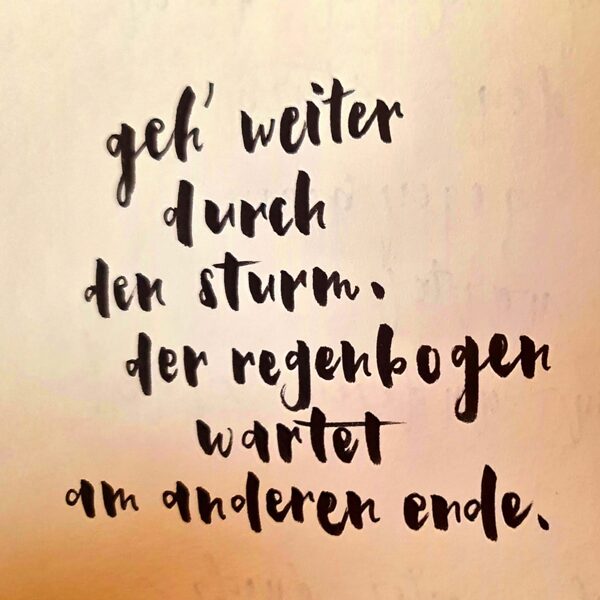 geh' weiter
durch
den sturm.
der regenbogen
wartet
am anderen ende.